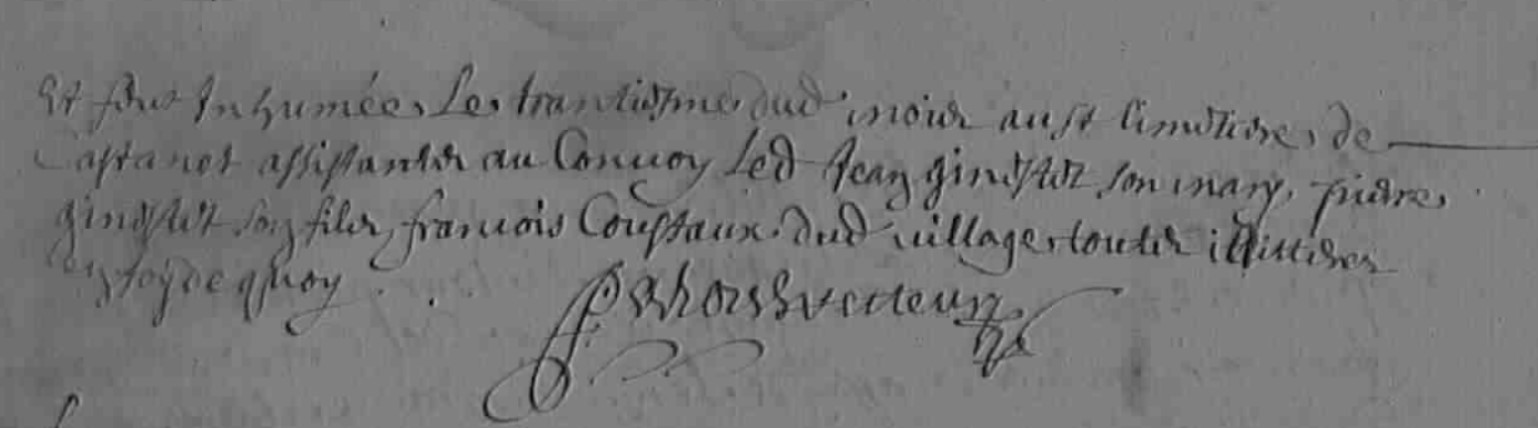 Et feut Inhumée Le trantiesme dud mois au st Cimetiere de
Castanet assistantz au Convoy Led Jean ginestet son mary, pierre
ginestet son filz, francois Coustaux dud village toutz illitteres
en foy de quoy
recteur